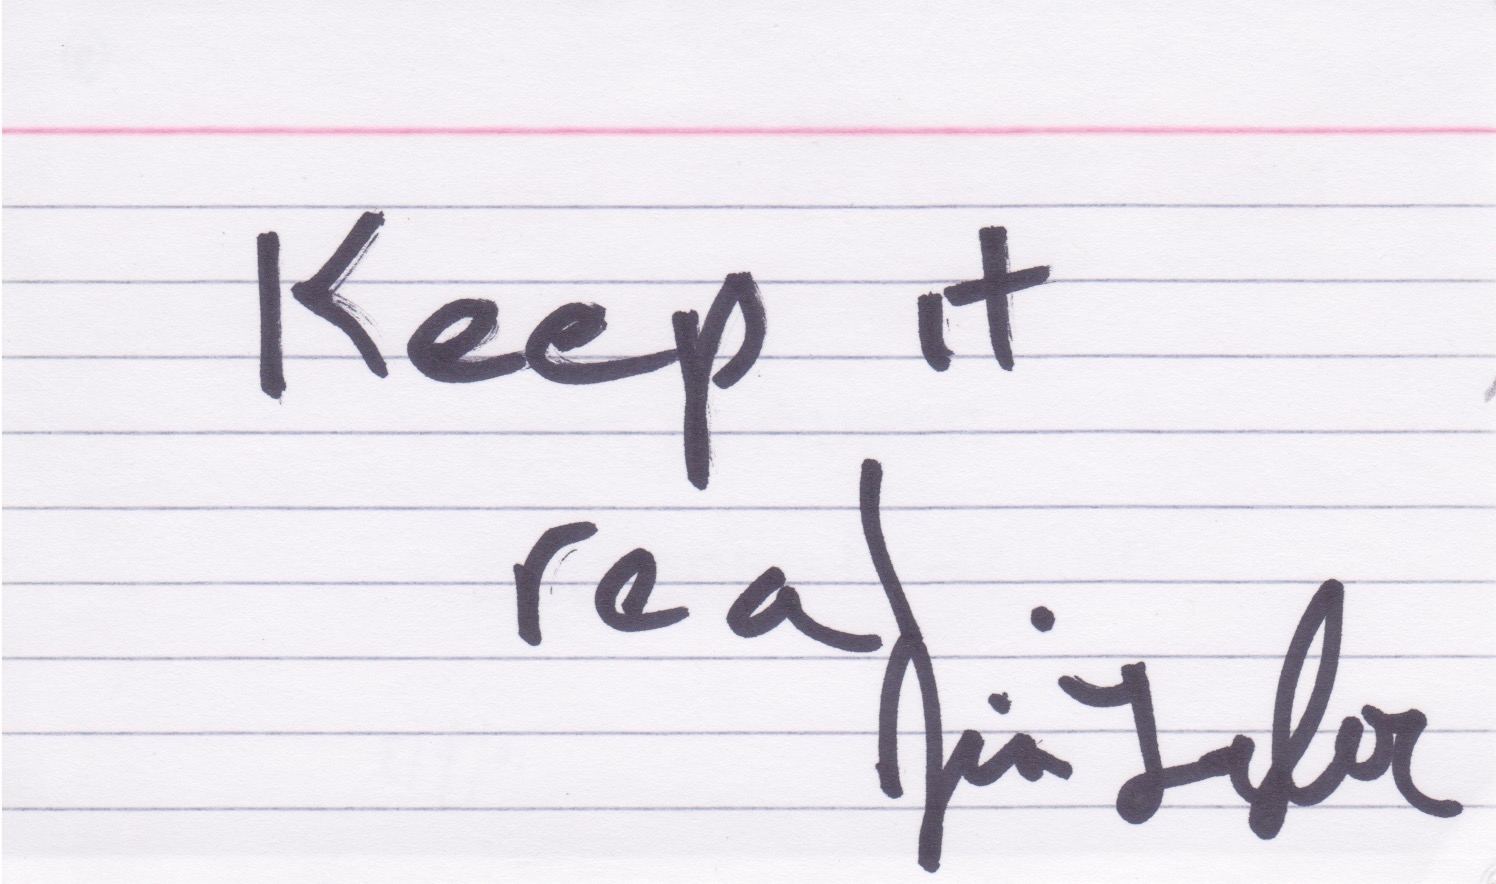 Keep it
real
Jim